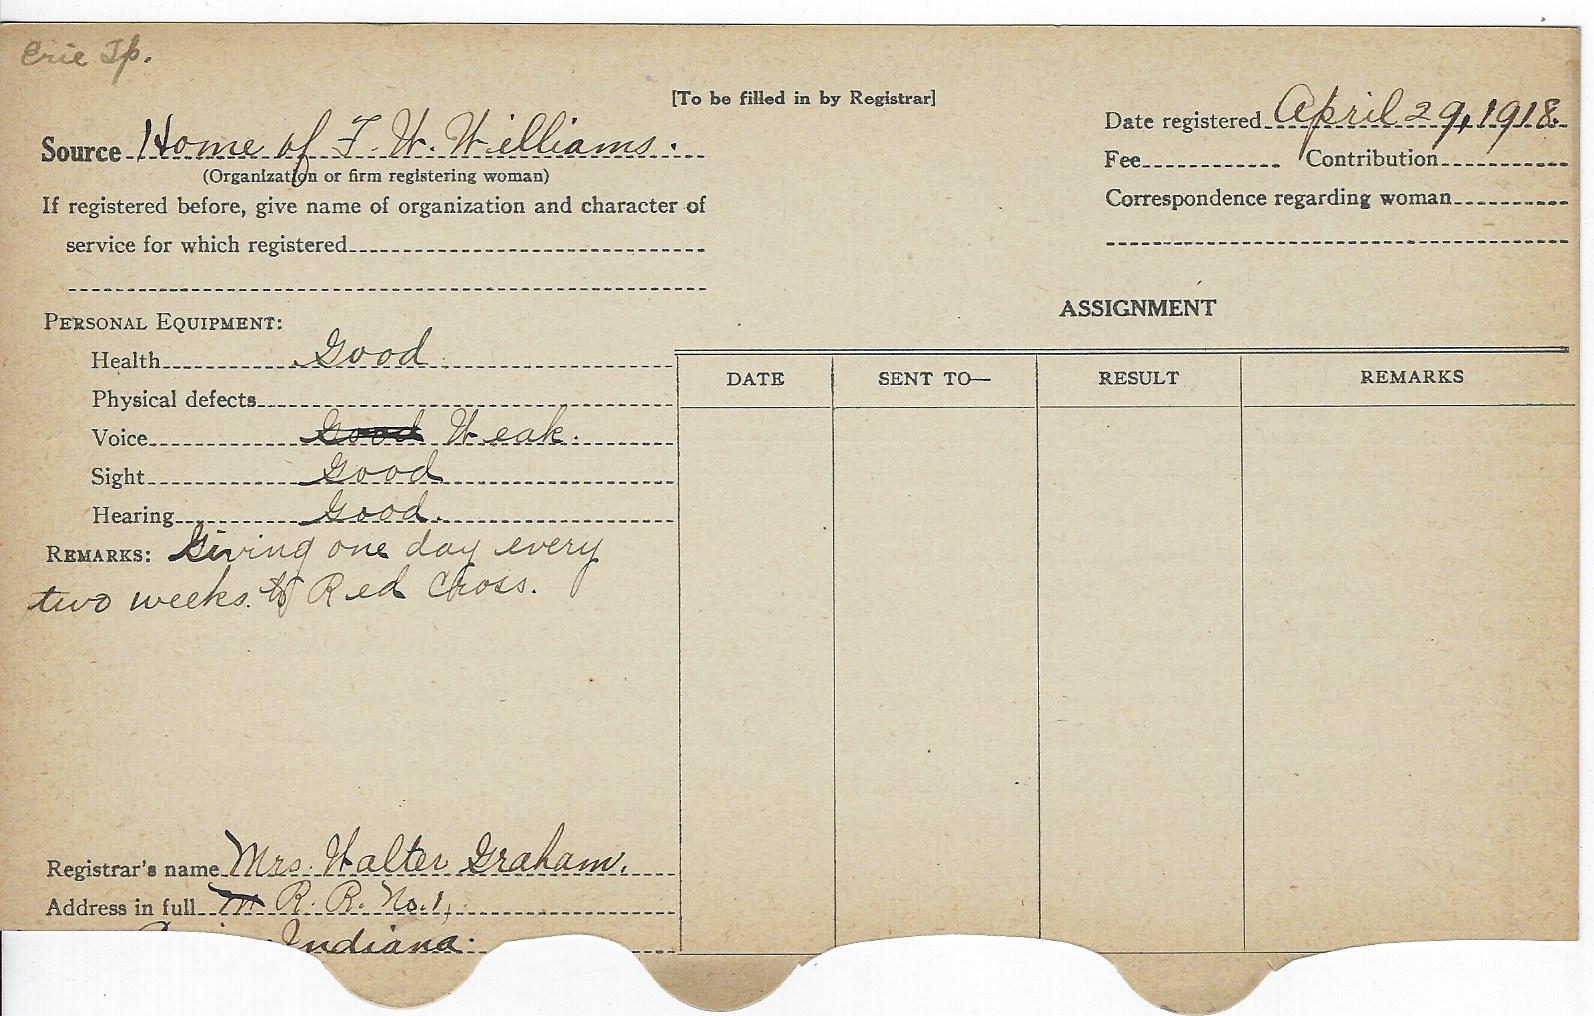 Erie Tp.
[To be filled in by Registrar]
Source Home of F. W. Williams.
(Organization or firm registering woman)
If registered before, give name of organization and character of
service for which registered
Date registered April 29, 1918.
Fee Contribution
Correspondence regarding woman
PERSONAL EQUIPMENT:
Health Good
Physical defects
Voice Good Weak.
Sight Good
Hearing Good.
REMARKS: Giving one day every
two weeks to Red Cross.
ASSIGNMENT
DATE SENT TO— RESULT REMARKS
Registrar's name Mrs. Walter Graham.
Address in full R. R. No. 1,
Indiana.